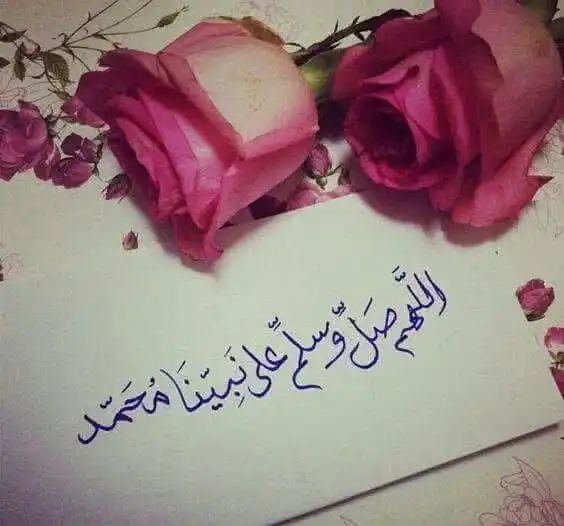 اللَّهم صَلِّ وَسلم عَلى نَبيّنَا مُحَمّد